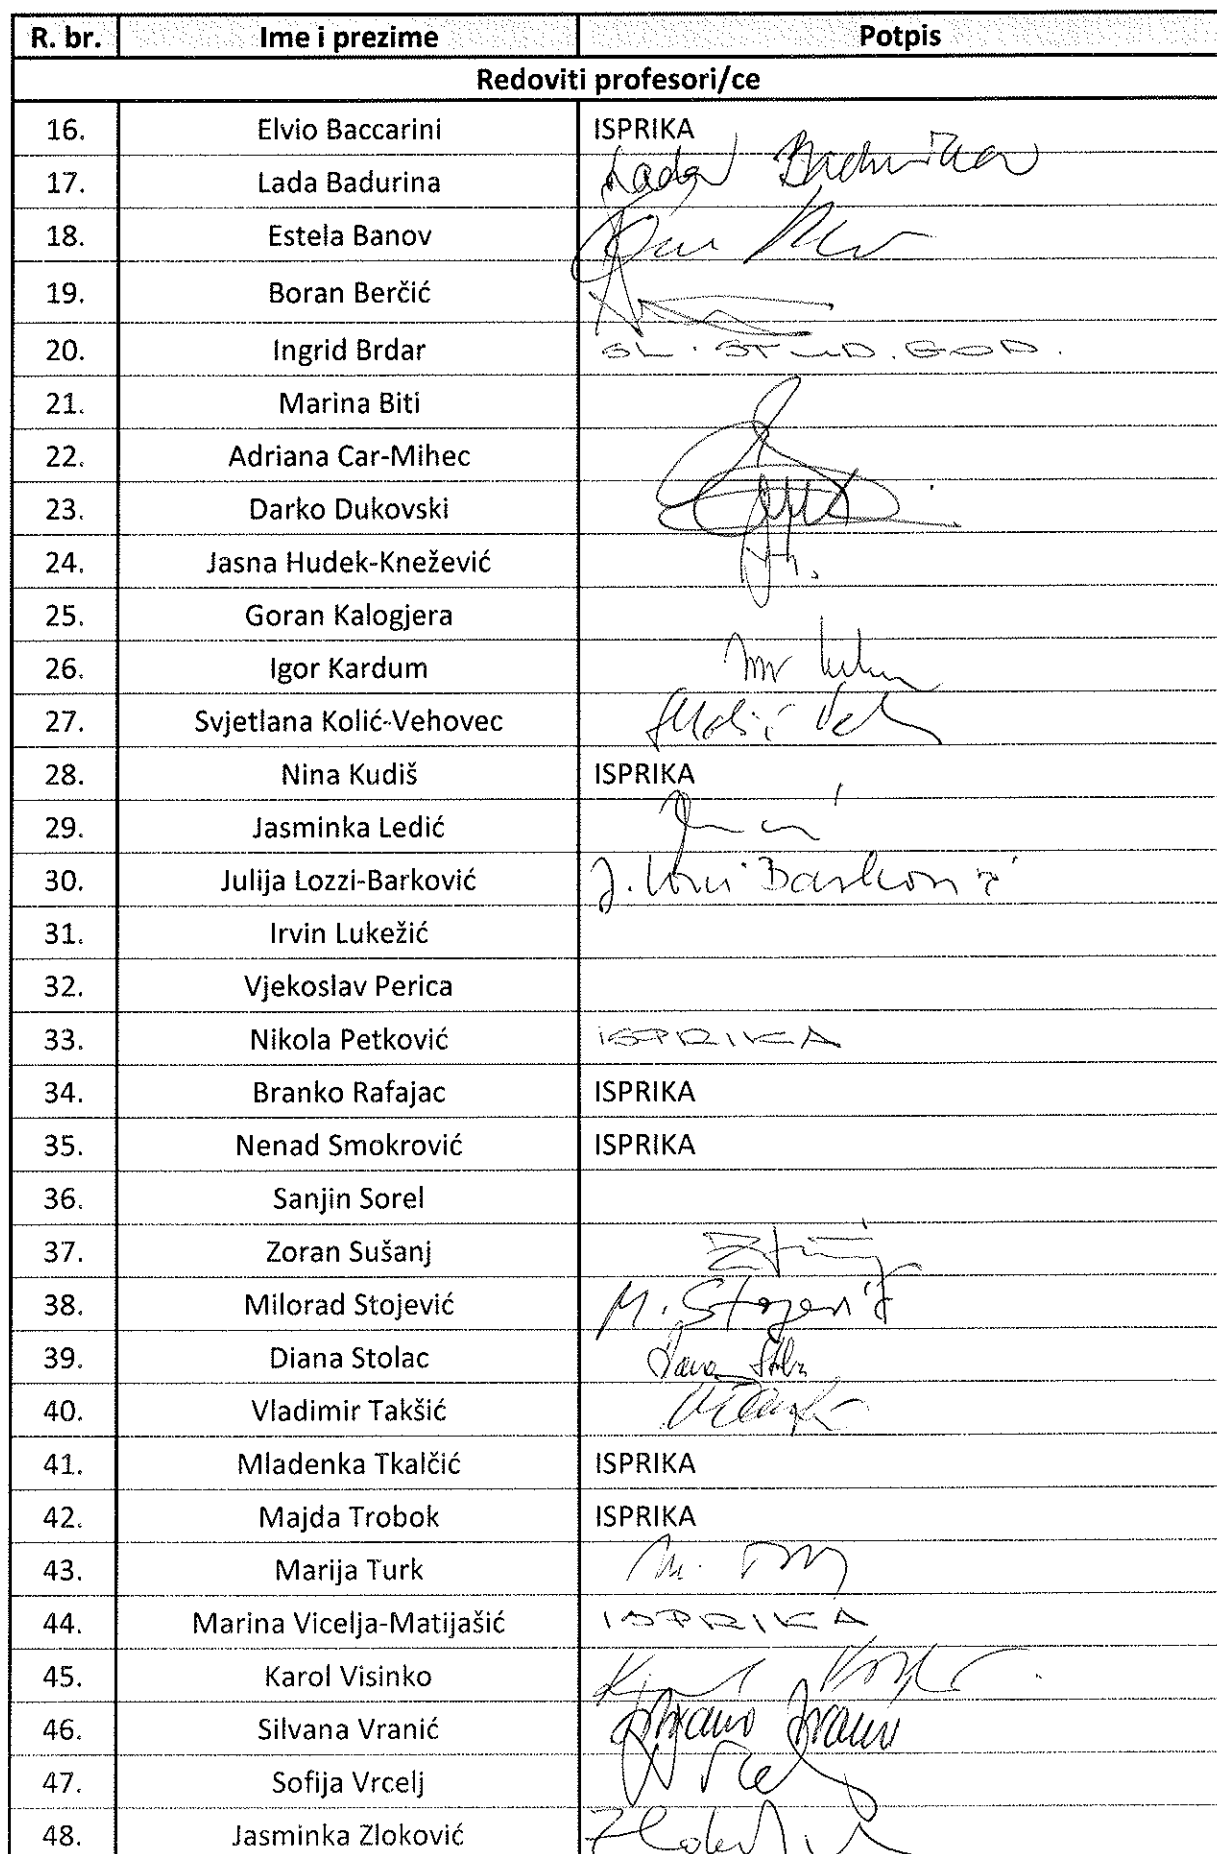 R. br. Ime i prezime Potpis
Redoviti profesori/ce
16. Elvio Baccarini ISPRIKA
17. Lada Badurina Lada Badurina
18. Estela Banov
19. Boran Berčić
20. Ingrid Brdar SL. STUD. GOD.
21. Marina Biti
22. Adriana Car-Mihec
23. Darko Dukovski
24. Jasna Hudek-Knežević
25. Goran Kalogjera
26. Igor Kardum
27. Svjetlana Kolić-Vehovec
28. Nina Kudiš ISPRIKA
29. Jasminka Ledić
30. Julija Lozzi-Barković J. Lozzi Barković
31. Irvin Lukežić
32. Vjekoslav Perica
33. Nikola Petković ISPRIKA
34. Branko Rafajac ISPRIKA
35. Nenad Smokrović ISPRIKA
36. Sanjin Sorel
37. Zoran Sušanj
38. Milorad Stojević M. Stojević
39. Diana Stolac
40. Vladimir Takšić
41. Mladenka Tkalčić ISPRIKA
42. Majda Trobok ISPRIKA
43. Marija Turk
44. Marina Vicelja-Matijašić ISPRIKA
45. Karol Visinko
46. Silvana Vranić
47. Sofija Vrcelj
48. Jasminka Zloković